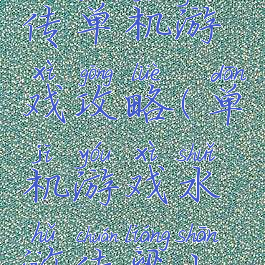 传单机游
xì gōng lüè dān
戏攻略(单
jī yóu xì shuǐ
机游戏水
hǔ zhuàn liáng shān